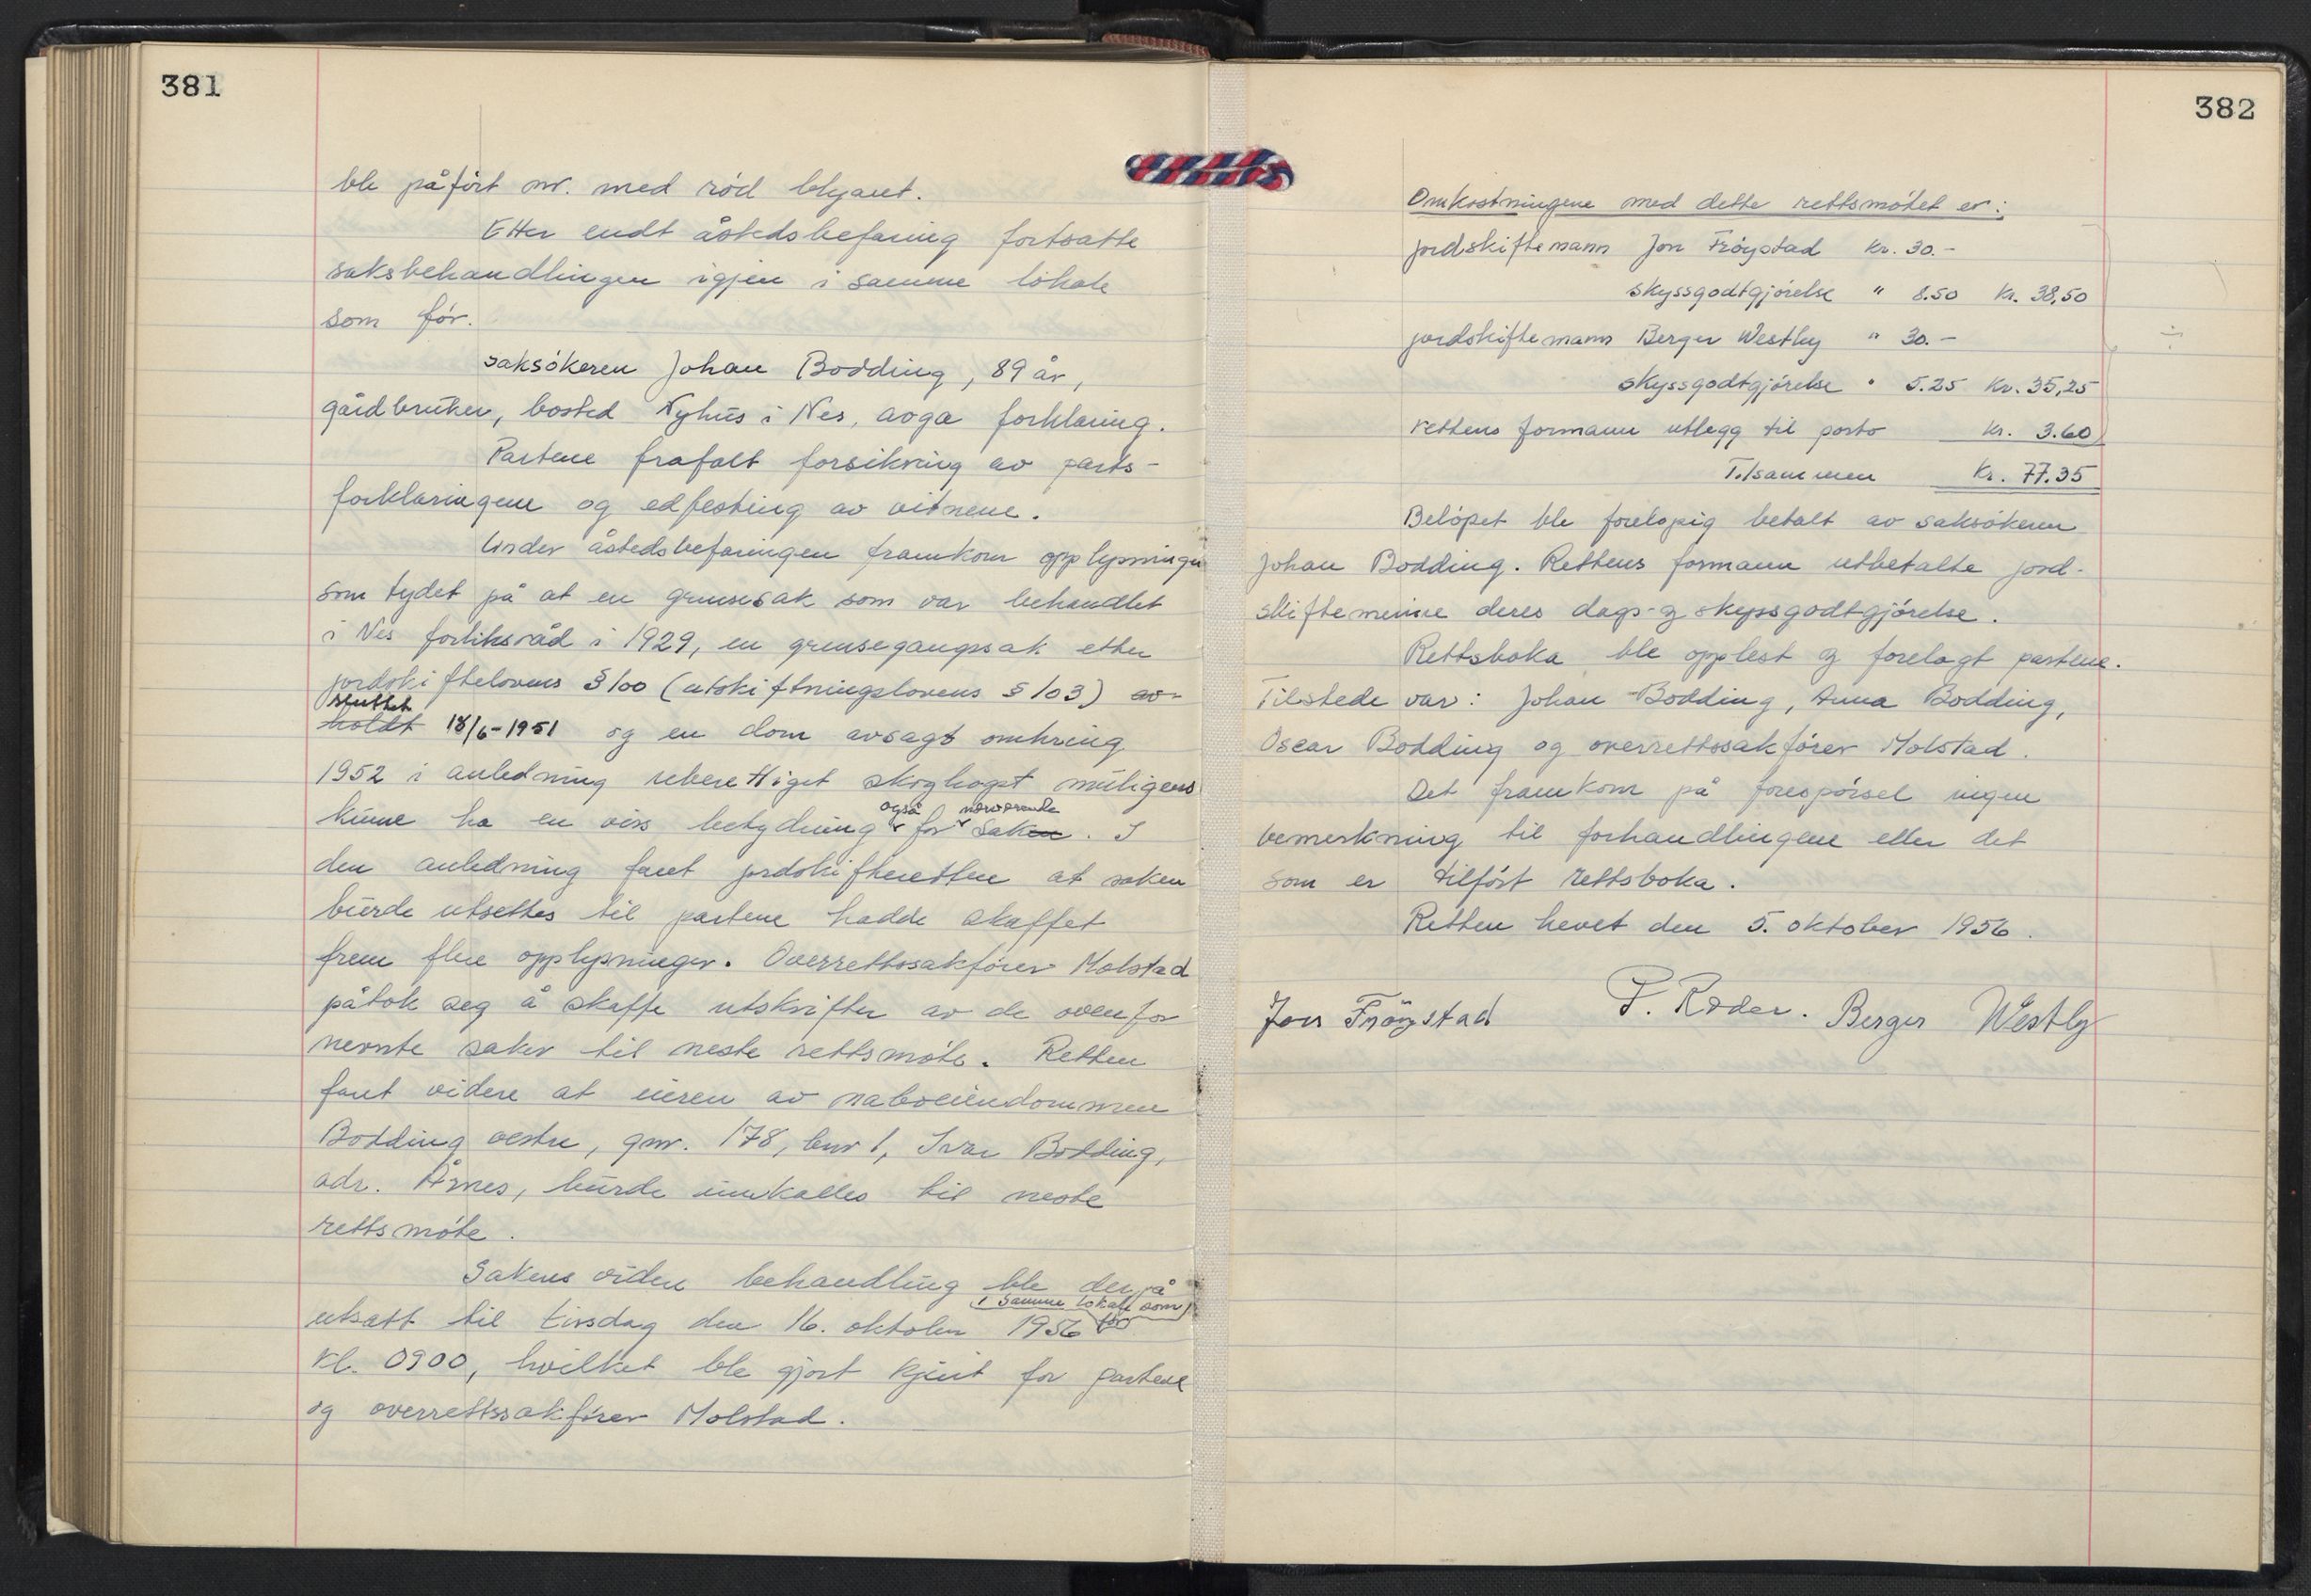 381
ble påført nr. med rød blyant.
Etter endt åstedsbefaring fortsatte
saksbehandlingen igjen i samme lokale
som før.
Saksøkeren Johan Bodding, 89 år,
gårdbruker, bosted Nyhus i Nes, avga forklaring.
Partene frafalt forsikring av parts-
forklaringene og edfesting av vitnene.
Under åstedsbefaringen framkom opplysninger
som tydet på at en grensesak som var behandlet
i Nes forliksråd i 1929, en grensegangssak etter
jordskiftelovens § 100 (utskiftningslovens § 103) av-
sluttet
holdt 18/6-1951 og en dom avsagt omkring
1952 i anledning uberettiget skoghogst muligens
også nærværende
kunne ha en viss betydning for saken. I
den anledning fant jordskifteretten at saken
burde utsettes til partene hadde skaffet
frem flere opplysninger. Overrettssakfører Molstad
påtok seg å skaffe utskrifter av de ovenfor
nevnte saker til neste rettsmøte. Retten
fant videre at eieren av naboeiendommen
Bodding vestre, gnr. 178, bnr 1, Ivar Bodding,
adr. Årnes, burde innkalles til neste
rettsmøte.
Sakens videre behandling ble der på
i samme lokale som
utsatt til tirsdag den 16. oktober 1956 før
kl. 0900, hvilket ble gjort kjent for partene
og overrettssakfører Molstad.
382
Omkostningene med dette rettsmøtet er:
jordskiftemann Jon Frøystad kr. 30.-
skyssgodtgjørelse " 8.50 kr. 38,50
jordskiftemann Berger Westby " 30.-
skyssgodtgjørelse " 5.25 kr. 35,25
rettens formann utlegg til porto kr. 3.60
Tilsammen kr. 77.35
Beløpet ble foreløpig betalt av saksøkeren
Johan Bodding. Rettens formann utbetalte jord-
skiftemenne deres dags- og skyssgodtgjørelse.
Rettsboka ble opplest og forelagt partene.
Tilstede var: Johan Bodding, Anna Bodding,
Oscar Bodding og overrettssakfører Molstad.
Det framkom på forespørsel ingen
bemerkning til forhandlingene eller det
som er tilført rettsboka.
Retten hevet den 5. oktober 1956.
Jon Frøystad P. Røder. Berger Westby